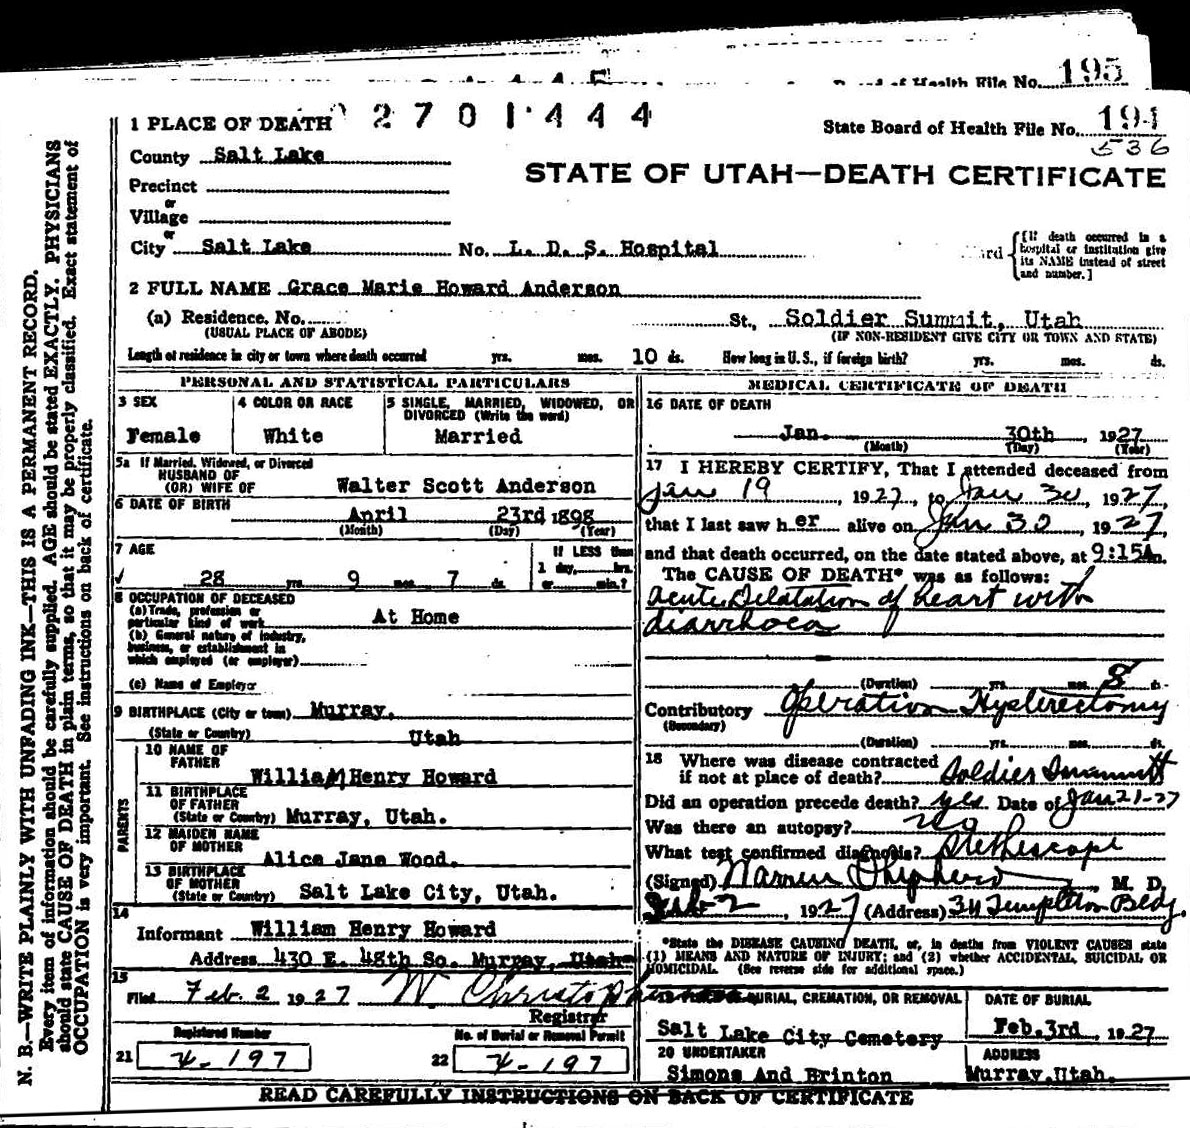 Board of Health File No. 195
1 PLACE OF DEATH 2701444
State Board of Health File No. 194
536
County Salt Lake
STATE OF UTAH—DEATH CERTIFICATE
Precinct
or
Village
or
City Salt Lake No. L. D. S. Hospital
[If death occurred in a hospital or institution give its NAME instead of street and number.]
2 FULL NAME Grace Marie Howard Anderson
(a) Residence. No. St., Soldier Summit, Utah
(USUAL PLACE OF ABODE) (IF NON-RESIDENT GIVE CITY OR TOWN AND STATE)
Length of residence in city or town where death occurred yrs. mos. 10 ds. How long in U. S., if foreign birth? yrs. mos. ds.
PERSONAL AND STATISTICAL PARTICULARS
3 SEX
Female
4 COLOR OR RACE
White
5 SINGLE, MARRIED, WIDOWED, OR DIVORCED (Write the word)
Married
5a If Married, Widowed, or Divorced
HUSBAND OF
(OR) WIFE OF Walter Scott Anderson
6 DATE OF BIRTH
April 23rd 1898
(Month) (Day) (Year)
7 AGE
28 yrs. 9 mos. 7 ds.
If LESS than
1 day, hrs.
or min.?
8 OCCUPATION OF DECEASED
(a) Trade, profession or particular kind of work At Home
(b) General nature of industry, business, or establishment in which employed (or employer)
(c) Name of Employer
9 BIRTHPLACE (City or town) Murray,
(State or Country) Utah
PARENTS
10 NAME OF FATHER William Henry Howard
11 BIRTHPLACE OF FATHER
(State or Country) Murray, Utah.
12 MAIDEN NAME OF MOTHER Alice Jane Wood.
13 BIRTHPLACE OF MOTHER
(State or Country) Salt Lake City, Utah.
14
Informant William Henry Howard
Address 430 E. 48th So. Murray, Utah
15
Filed Feb. 2 1927 W Christoph
Registrar
Registered Number
21 X-197
No. of Burial or Removal Permit
22 X-197
MEDICAL CERTIFICATE OF DEATH
16 DATE OF DEATH
Jan. 30th, 1927
(Month) (Day) (Year)
17 I HEREBY CERTIFY, That I attended deceased from
Jan 19, 1927, to Jan 30, 1927,
that I last saw her alive on Jan 30 1927
and that death occurred, on the date stated above, at 9:15 A m.
The CAUSE OF DEATH* was as follows:
Acute Dilatation of heart with
diarrhoea
(Duration) yrs. mos. 8 ds.
Contributory Operation Hysterectomy
(Secondary)
(Duration) yrs. mos. ds.
18 Where was disease contracted
if not at place of death? Soldier Summitt
Did an operation precede death? yes Date of Jan 21-27
Was there an autopsy? no
What test confirmed diagnosis? Stethescope
(Signed) Warren Shepherd, M. D.
Feb 2, 1927 (Address) 34 Templeton Bldg.
*State the DISEASE CAUSING DEATH, or, in deaths from VIOLENT CAUSES state
(1) MEANS AND NATURE OF INJURY; and (2) whether ACCIDENTAL, SUICIDAL OR
HOMICIDAL. (See reverse side for additional space.)
BURIAL, CREMATION, OR REMOVAL
Salt Lake City Cemetery
DATE OF BURIAL
Feb. 3rd, 1927
20 UNDERTAKER
Simons And Brinton
ADDRESS
Murray, Utah.
READ CAREFULLY INSTRUCTIONS ON BACK OF CERTIFICATE
N. B.—WRITE PLAINLY WITH UNFADING INK—THIS IS A PERMANENT RECORD.
Every item of information should be carefully supplied. AGE should be stated EXACTLY. PHYSICIANS
should state CAUSE OF DEATH in plain terms, so that it may be properly classified. Exact statement of
OCCUPATION is very important. See instructions on back of certificate.